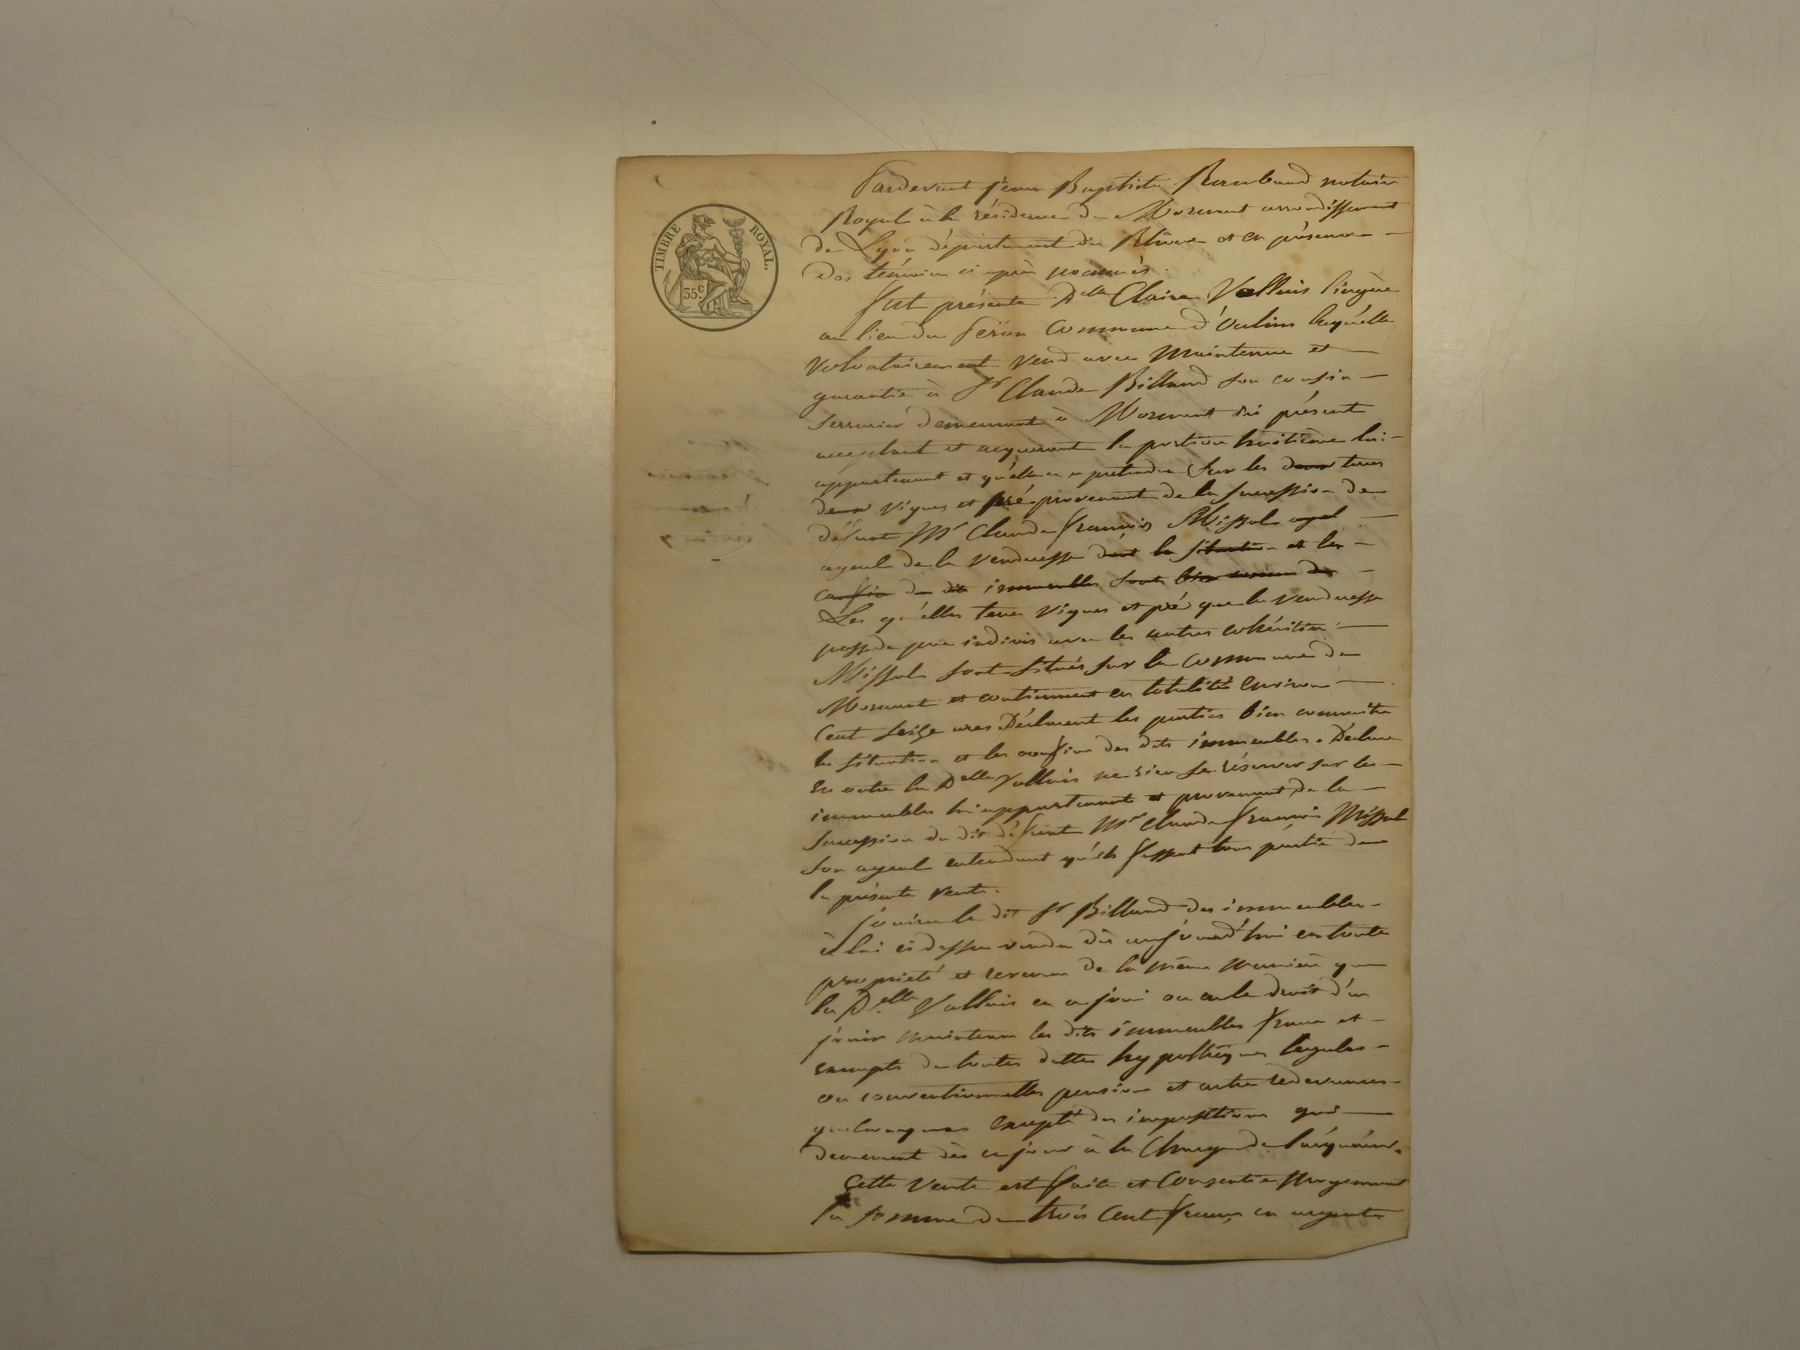 TIMBRE ROYAL.
35c
Pardevant jean Baptiste Rambaud notaire
Royal à la résidence de Mornant arrondissement
de Lyon département du Rhône et en présence
des témoins ci après nommés.
fut présente Dlle Claire Valluis lingère
au lieu du Perron Commune d'oulins laqu'elle
volontairement vend avec maintenue et
garantie à Sr Claude Billand son cousin
serrurier demeurant à Mornant ici présent
acceptant et acquerant la portion huitième lui
appartenant et qu'elle a a prétendre sur les deux terres
deux vignes et pré provenant de la succession de
défunt Mr Claude françois Missol ayeul
ayeul de la venderesse dont la situation et les
confins des dits immeubles sont bien connus des
Les qu'elles terres vignes et pré que la venderesse
possède par indivis avec les autres cohéritiers
Missol sont situés sur la commune de
Mornant et contiennent en totalité environ
Cent seize ares. Déclarent les parties bien connaitre
la situation et les confins des dits immeubles. Déclare
en outre la Delle Valluis ne rien se réserver sur les
immeubles lui appartenant et provenant de la
succession du dit défunt Mr Claude françois Missol
son ayeul entendant qu'ils fassent tous partie de
la présente vente.
jouira le dit Sr Billand des immeubles
à lui ci dessus vendu dès aujourd'hui en toute
propriété et revenu de la même manière que
la Delle Valluis en a joui ou eu le droit d'en
jouir maintenu les dits immeubles franc et
exempts de toutes dettes hypothèques légales
ou conventionnelles pensions et autre redevances
quelconques excepté des impositions qui
demeurent dès ce jour à la Charge de l'acquéreur.
Cette vente est faite et Consentie moyennant
la somme de trois Cent francs en argent